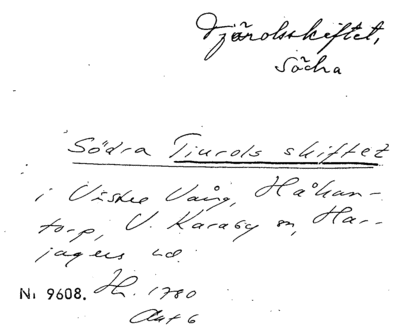 Tjärolsskiftet,
Södra
Södra Tiurols skiftet
i Västra Vång, Håkan-
torp, V. Karaby sn, Har-
jagers hd.
Nr 9608. Hk. 1780
Akt 6